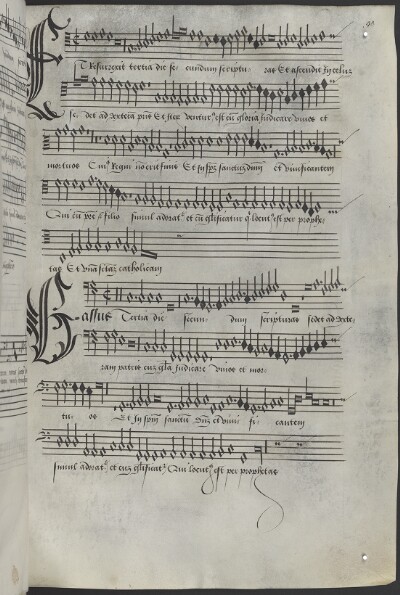 Et Resurrexit tertia die se- cundum scriptu- ras Et ascendit in celum
se- det ad dexteram p̄ris Et iteꝝ ventur⁹ est cū gloria Judicare vivos et
mortuos Cui⁹ regni nō erit finis Et in spm̄ sanctum dn̄m et vivificantem
Qui cū pr̄e et filio simul adorat᷑ et cū glificatur q̇ locut⁹ est per prophe-
tas Et unā sctām catholicam
Bassus Tertia die secun- dum scripturas sedet ad dexte-
ram patris cuȝ glā Judicare vivos et mor-
tu- os Et in spm̄ sanctū dn̄m et vivi- fi- cantem
simul adorat᷑ et cuȝ glificat᷑ Qui locut⁹ est per prophetas